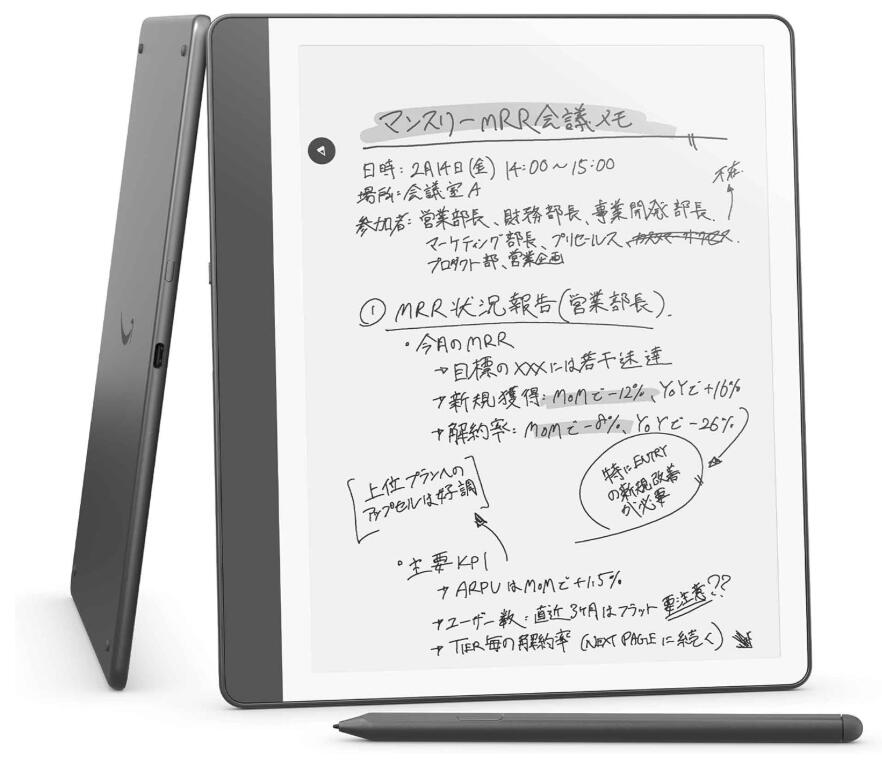 マンスリーMRR会議メモ
日時：2月14日(金) 14:00～15:00
場所：会議室A
不在
参加者：営業部長、財務部長、事業開発部長、
マーケティング部長、プリセールス、カスタマーサクセス.
プロダクト部、営業企画
① MRR状況報告(営業部長).
・今月のMRR
→目標のXXXには若干未達
→新規獲得：MoMで-12%、YoYで+16%
→解約率：MoMで-8%、YoYで-26%
特にENTRY
の新規改善
が必要
[上位プランへの
アップセルは好調]
・主要KPI
→ARPUはMoMで+1.5%
→ユーザー数：直近3ヶ月はフラット 要注意??
→TIER毎の解約率 (NEXT PAGEに続く)